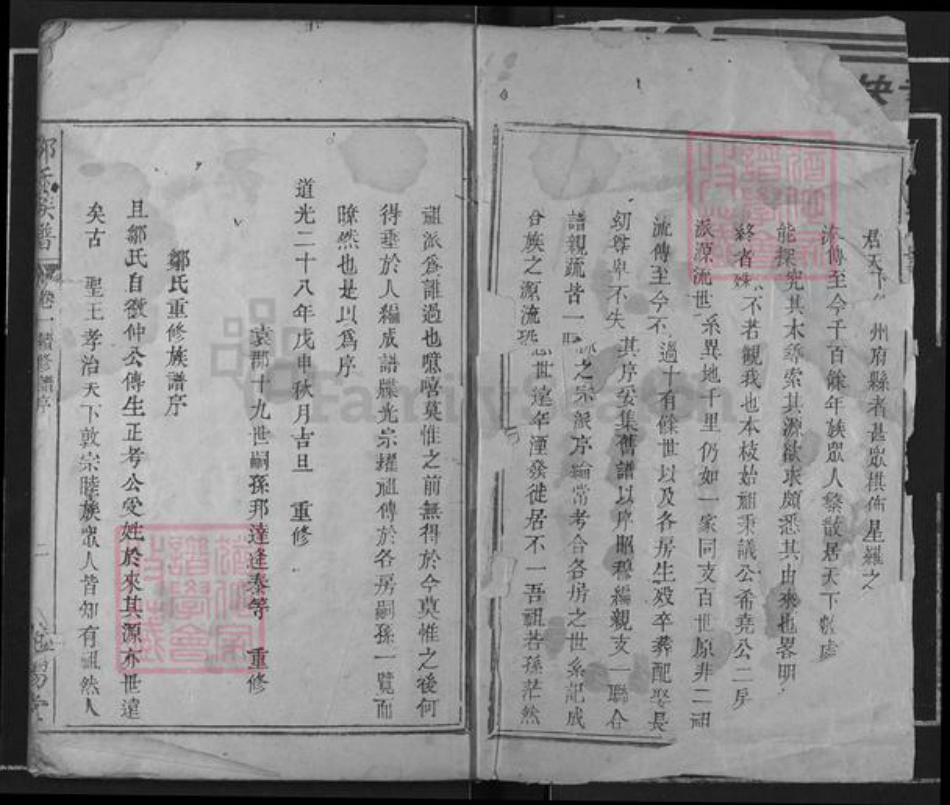 君天下 州府縣者甚眾棋佈星羅之
流傳至今千百餘年族眾人繁散居天下
能探究其木尋索其源欲求頗悉其由來也畧明
終者殊 不若觀我也本枝始祖秉議公希堯公二房
派源流世系異地千里仍如一家同支百世原非二祖
流傳至今不過十有餘世以及各房生歿卒葬配娶長
幼尊卑不失其序妥集舊譜以序昭穆編親支一聯合
譜親疏皆一 之宗派序綸常考合各房之世系記成
各族之源流 世遠年湮發徙居不一吾祖若孫茫然
祖派爲誰過也噫嘻莫惟之前無得於今莫惟之後何
得垂於人編成譜牒光宗耀祖傳於各房嗣孫一覽而
瞭然也是以爲序
道光二十八年戊申秋月吉旦 重修
袁郡十九世嗣孫邦達逢泰等 重修
鄒氏重修族譜序
且鄒氏自微仲公傳生正考公受姓於來其源亦世遠
矣古 聖王孝治天下敦宗睦族眾人皆知有祖然人
鄒氏族譜 卷一 續修譜序 二
FamilySearch